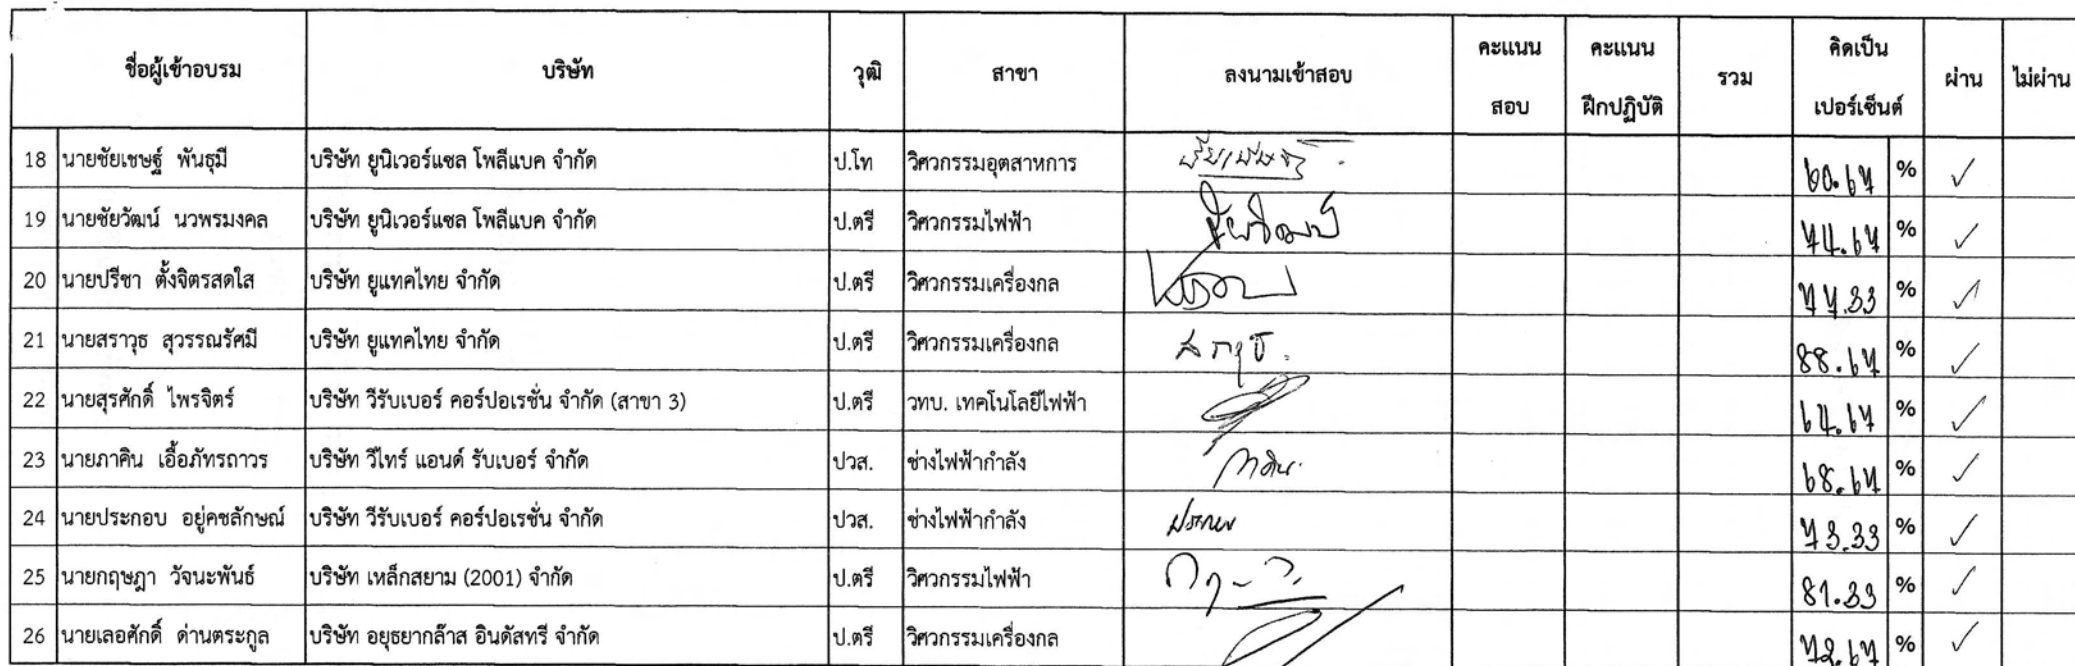 ชื่อผู้เข้าอบรม บริษัท วุฒิ สาขา ลงนามเข้าสอบ คะแนนสอบ คะแนนฝึกปฏิบัติ รวม คิดเป็นเปอร์เซ็นต์ ผ่าน ไม่ผ่าน
18 นายชัยเชษฐ์ พันธุมี บริษัท ยูนิเวอร์แซล โพลีแบค จำกัด ป.โท วิศวกรรมอุตสาหการ ชัยเชษฐ์ 60.67 % ✓
19 นายชัยวัฒน์ นวพรมงคล บริษัท ยูนิเวอร์แซล โพลีแบค จำกัด ป.ตรี วิศวกรรมไฟฟ้า ชัยวัฒน์ 74.67 % ✓
20 นายปรีชา ตั้งจิตรสดใส บริษัท ยูแทคไทย จำกัด ป.ตรี วิศวกรรมเครื่องกล 77.33 % ✓
21 นายสราวุธ สุวรรณรัศมี บริษัท ยูแทคไทย จำกัด ป.ตรี วิศวกรรมเครื่องกล สราวุธ 88.67 % ✓
22 นายสุรศักดิ์ ไพรจิตร์ บริษัท วีรับเบอร์ คอร์ปอเรชั่น จำกัด (สาขา 3) ป.ตรี วทบ. เทคโนโลยีไฟฟ้า 64.67 % ✓
23 นายภาคิน เอื้อภัทรถาวร บริษัท วีไทร์ แอนด์ รับเบอร์ จำกัด ปวส. ช่างไฟฟ้ากำลัง ภาคิน 68.67 % ✓
24 นายประกอบ อยู่คชลักษณ์ บริษัท วีรับเบอร์ คอร์ปอเรชั่น จำกัด ปวส. ช่างไฟฟ้ากำลัง ประกอบ 73.33 % ✓
25 นายกฤษฎา วัจนะพันธ์ บริษัท เหล็กสยาม (2001) จำกัด ป.ตรี วิศวกรรมไฟฟ้า 81.33 % ✓
26 นายเลอศักดิ์ ด่านตระกูล บริษัท อยุธยากล๊าส อินดัสทรี จำกัด ป.ตรี วิศวกรรมเครื่องกล 72.67 % ✓